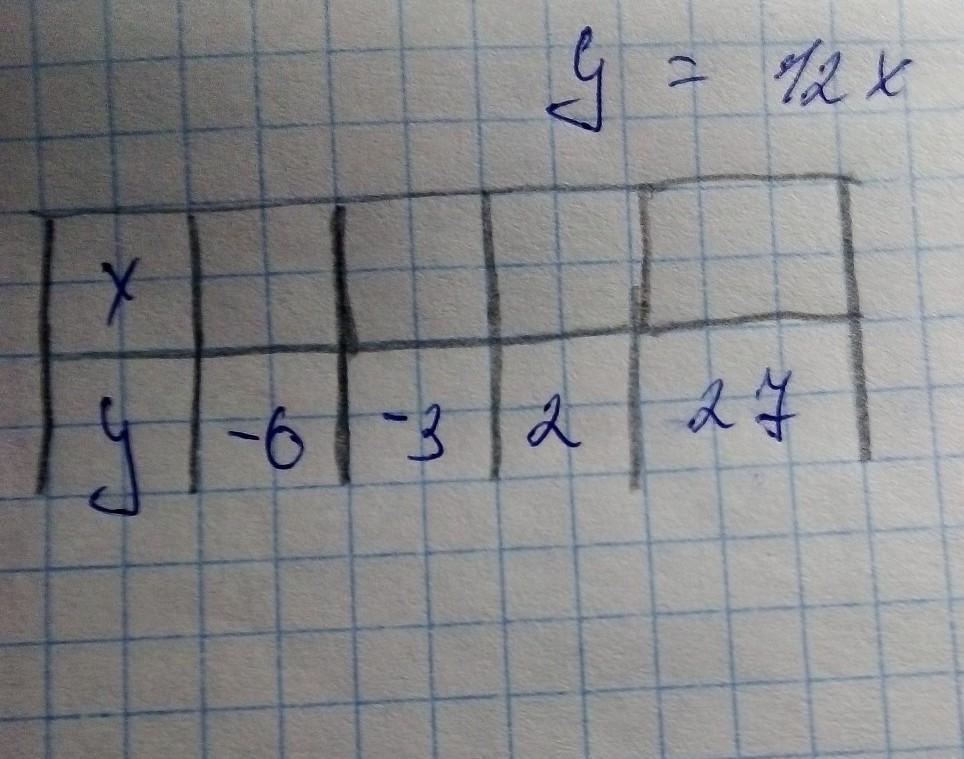 y = 12x
x
y -6 -3 2 27